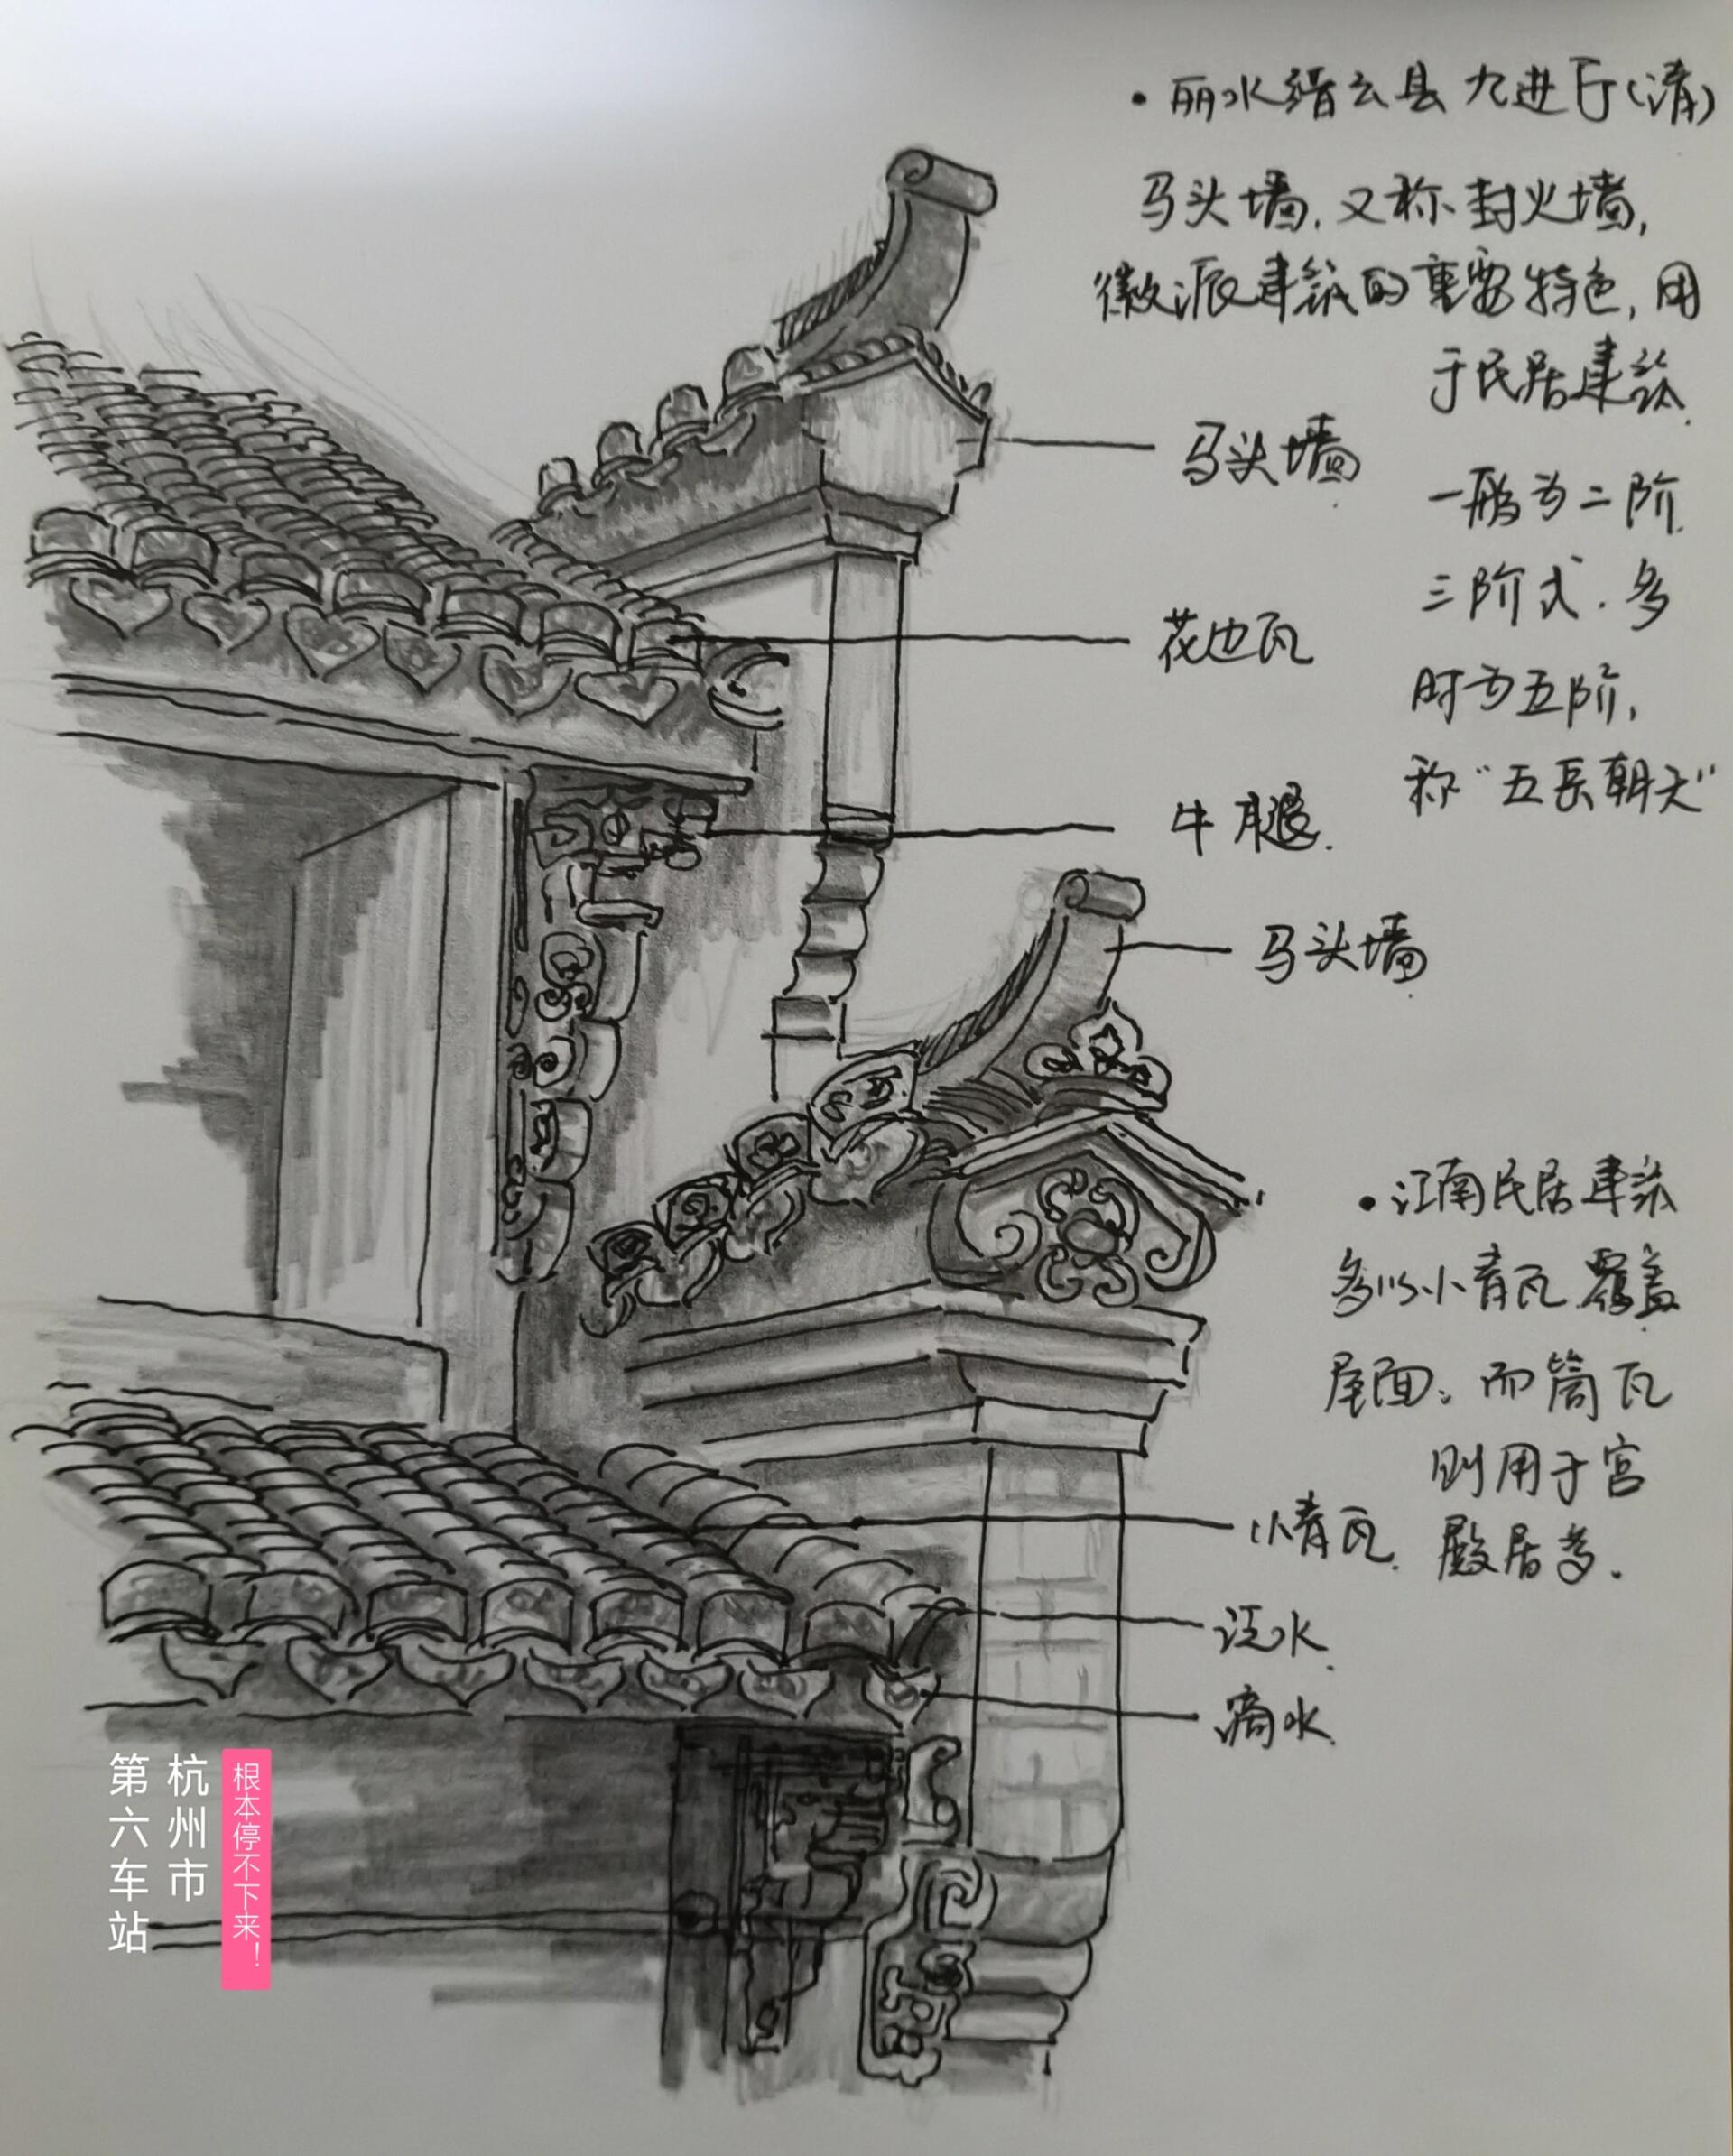 • 丽水缙云县 九进厅(清)
马头墙，又称封火墙，
徽派建筑的重要特色，用
于民居建筑.
马头墙
一般为二阶
三阶式.多
花边瓦
时为五阶，
称“五岳朝天”
牛腿.
马头墙
• 江南民居建筑
多以小青瓦覆盖
屋面；而筒瓦
则用于宫
小青瓦.
殿居多.
泛水
滴水
杭州市
第六车站
根本停不下来！